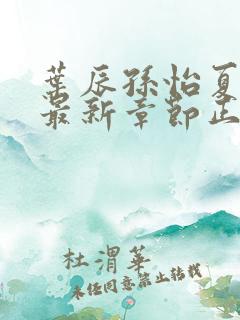 叶辰孙怡夏
最新章节正
杜渭华
未经同意禁止转载